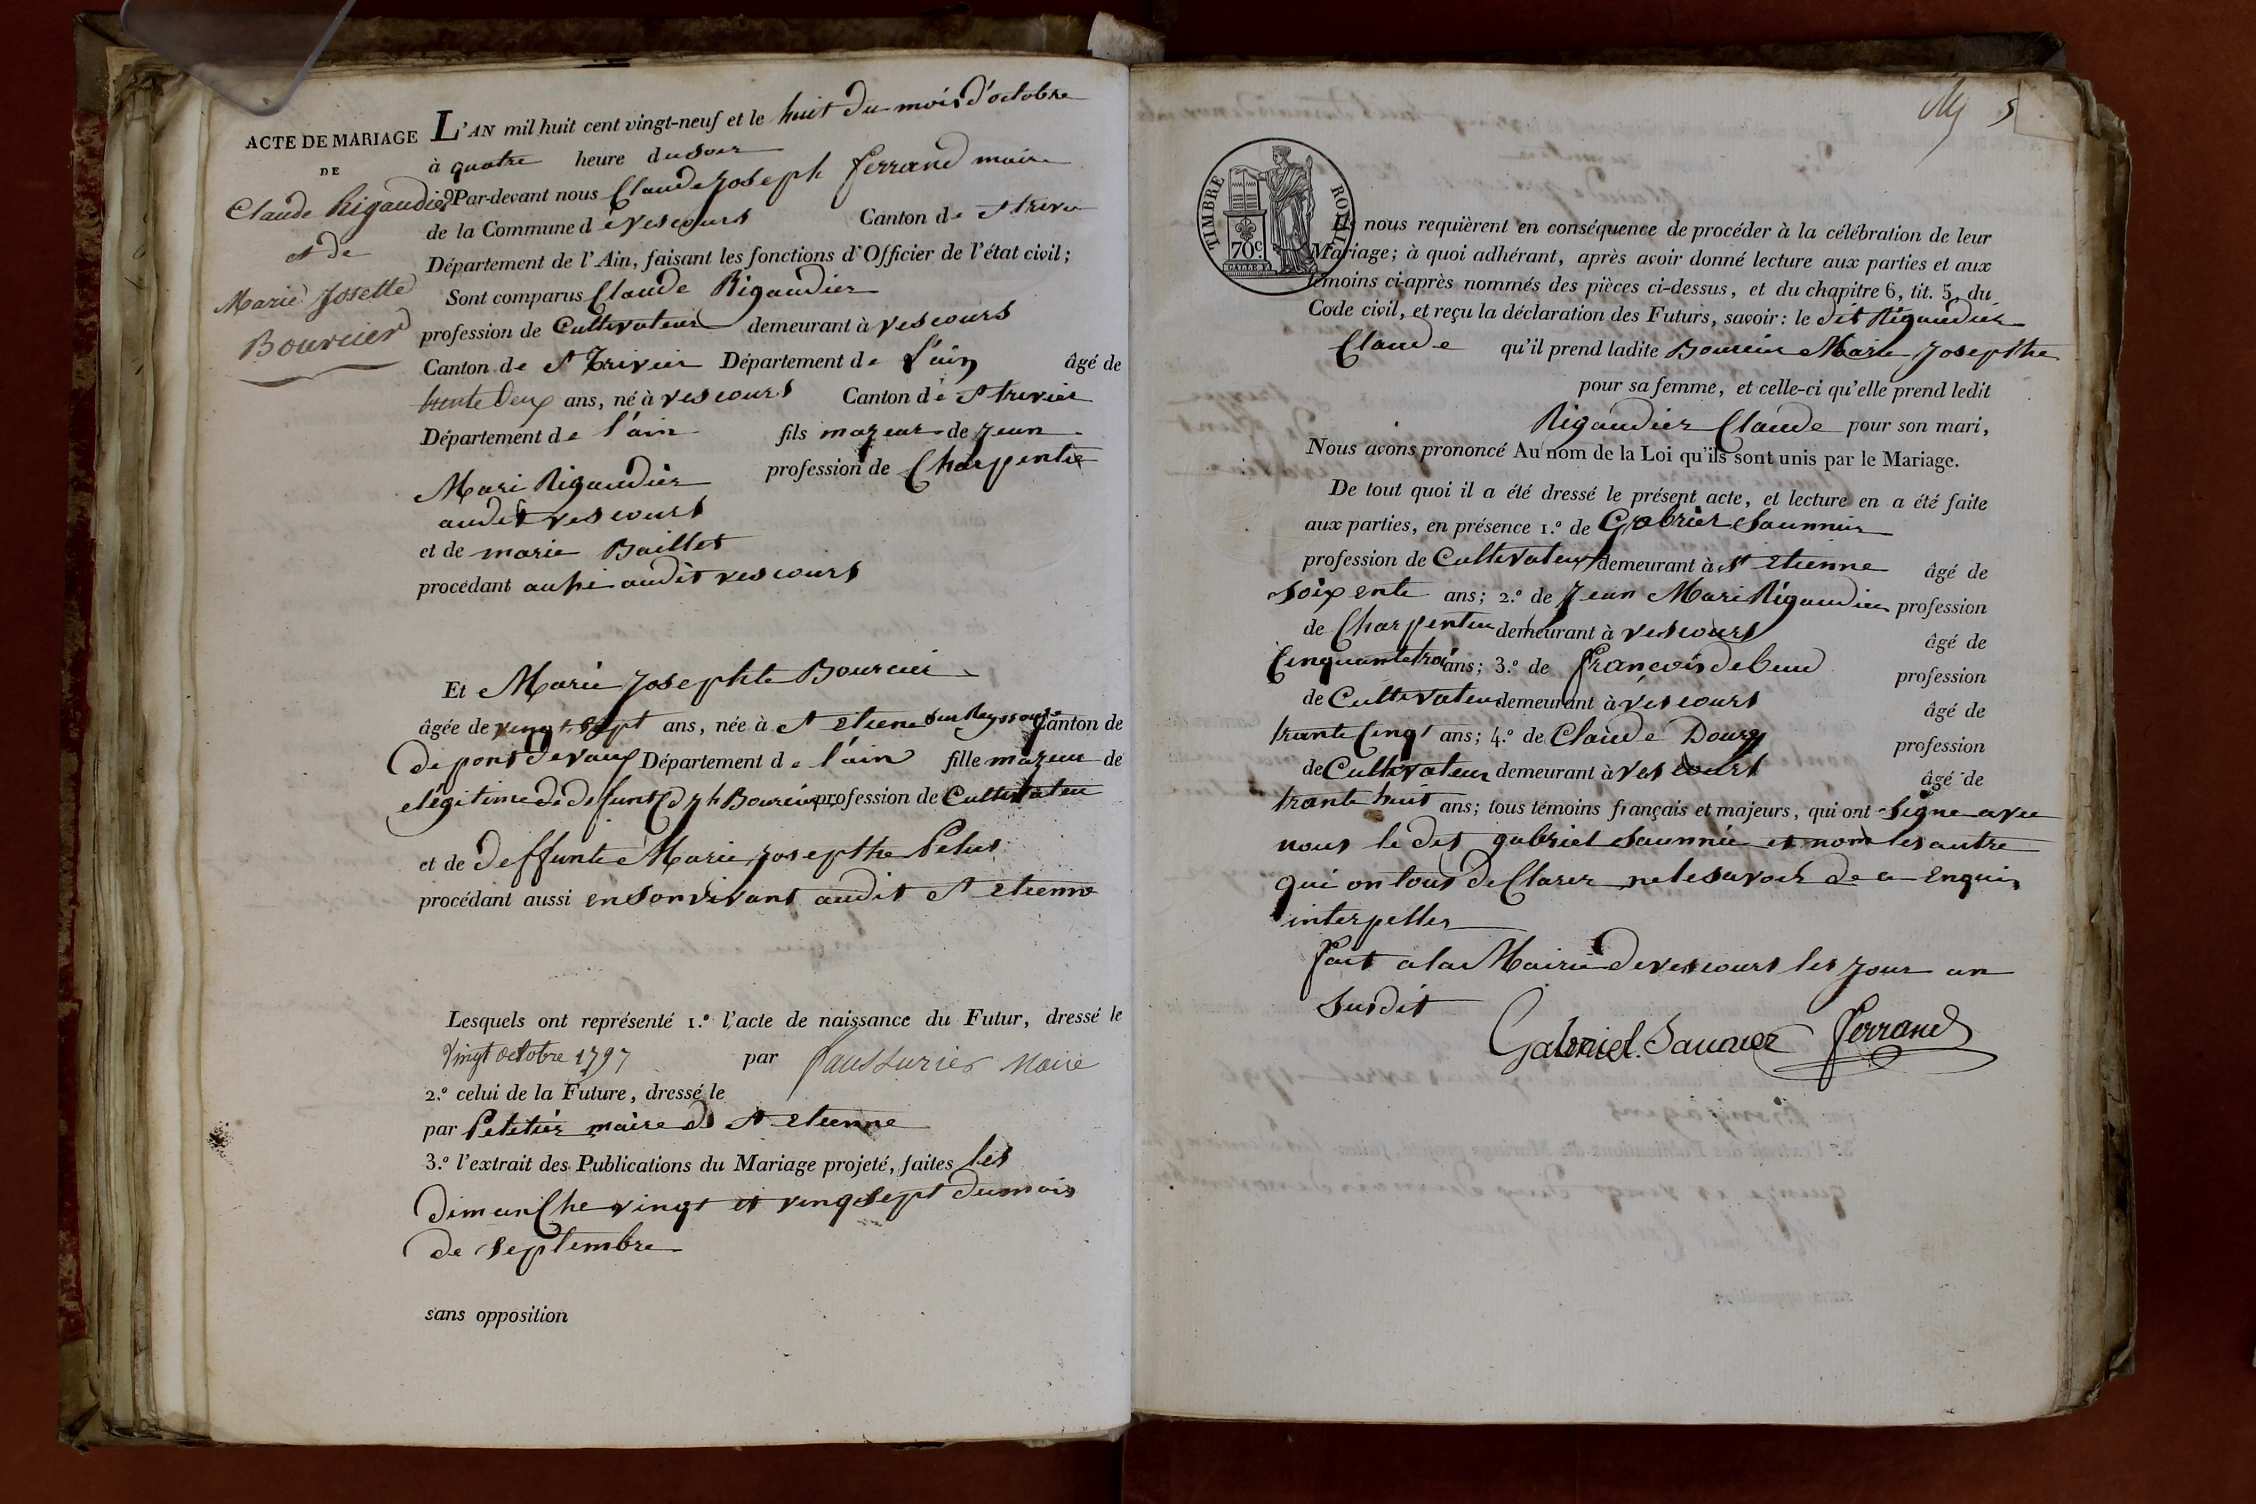 ACTE DE MARIAGE
DE
Claude Rigaudier
et de
Marie Josette
Bourcier
L'AN mil huit cent vingt-neuf et le huit du mois d'octobre
à quatre heure du soir
Par-devant nous Claude Joseph ferrand maire
de la Commune de vescours Canton de St trivier
Département de l'Ain, faisant les fonctions d'Officier de l'état civil;
Sont comparus Claude Rigaudier
profession de Cultivateur demeurant à vescours
Canton de St Trivier Département de l'ain âgé de
trente deux ans, né à vescours Canton de St trivier
Département de l'ain fils majeur de jean
Mari Rigaudier profession de Charpentie
audit vescours
et de marie Baillet
procédant aussi audit vescours
Et Marie Josephte Bourcier
âgée de vingt sept ans, née à St etiene sur Reyssouze Canton de
de pont devaux Département de l'ain fille majeur de
elégitime de defunt Bourcier profession de Cultivateu
et de deffunte Marie josepthe Petus
procédant aussi en son vivant audit St etienne
Lesquels ont représenté 1.º l'acte de naissance du Futur, dressé le
vingt octobre 1797 par Maire
2.º celui de la Future, dressé le
par Petitier maire de St etienne
3.º l'extrait des Publications du Mariage projeté, faites les
dimanche vingt et vingt sept du mois
de septembre
sans opposition
5
TIMBRE ROYAL
70 c.
nous requièrent en conséquence de procéder à la célébration de leur
Mariage; à quoi adhérant, après avoir donné lecture aux parties et aux
témoins ci-après nommés des pièces ci-dessus, et du chapitre 6, tit. 5, du
Code civil, et reçu la déclaration des Futurs, savoir: le dit Rigaudier
Claude qu'il prend ladite Bourcier Marie Josepthe
pour sa femme, et celle-ci qu'elle prend ledit
Rigaudier Claude pour son mari,
Nous avons prononcé Au nom de la Loi qu'ils sont unis par le Mariage.
De tout quoi il a été dressé le présent acte, et lecture en a été faite
aux parties, en présence 1.º de Gabrier Saunnier
profession de Cultivateur demeurant à St etienne âgé de
soixente ans; 2.º de jean Mari Rigaudier profession
de Charpentier demeurant à vescours âgé de
Cinquante troi ans; 3.º de francois debeud profession
de Cultivateur demeurant à vescours âgé de
trante Cinqt ans; 4.º de Claude Dourey profession
de Cultivateur demeurant à vescours âgé de
trante huit ans; tous témoins français et majeurs, qui ont signe avec
nous le dit gabriel saunnie et non les autre
qui on tous declarer ne le savoir de a enquis
interpeller
fait a la Mairie de vescours les jour an
susdit
Gabriel. Saunier Ferrand